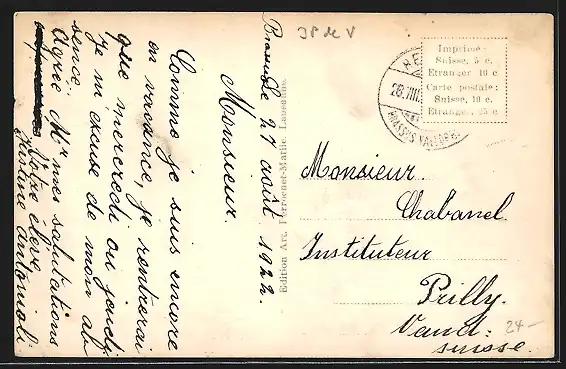 38 de V
Brassus le 27 août 1922.
Monsieur.
Comme je suis encore
en vacance, je rentrerai
que mercredi ou jeudi
Je m excuse de mon ab
sence.
Agrée Mr mes salutations
Votre élève
Edition Art. Perrochet-Matile Lausanne.
Imprimé:
Suisse, 5 c.
Etranger 10 c
Carte postale:
Suisse, 10 c.
Etranger, 25 c
28.VIII.
Monsieur.
Chabanel.
Instituteur
Prilly.
Vaud:
suisse.
24-